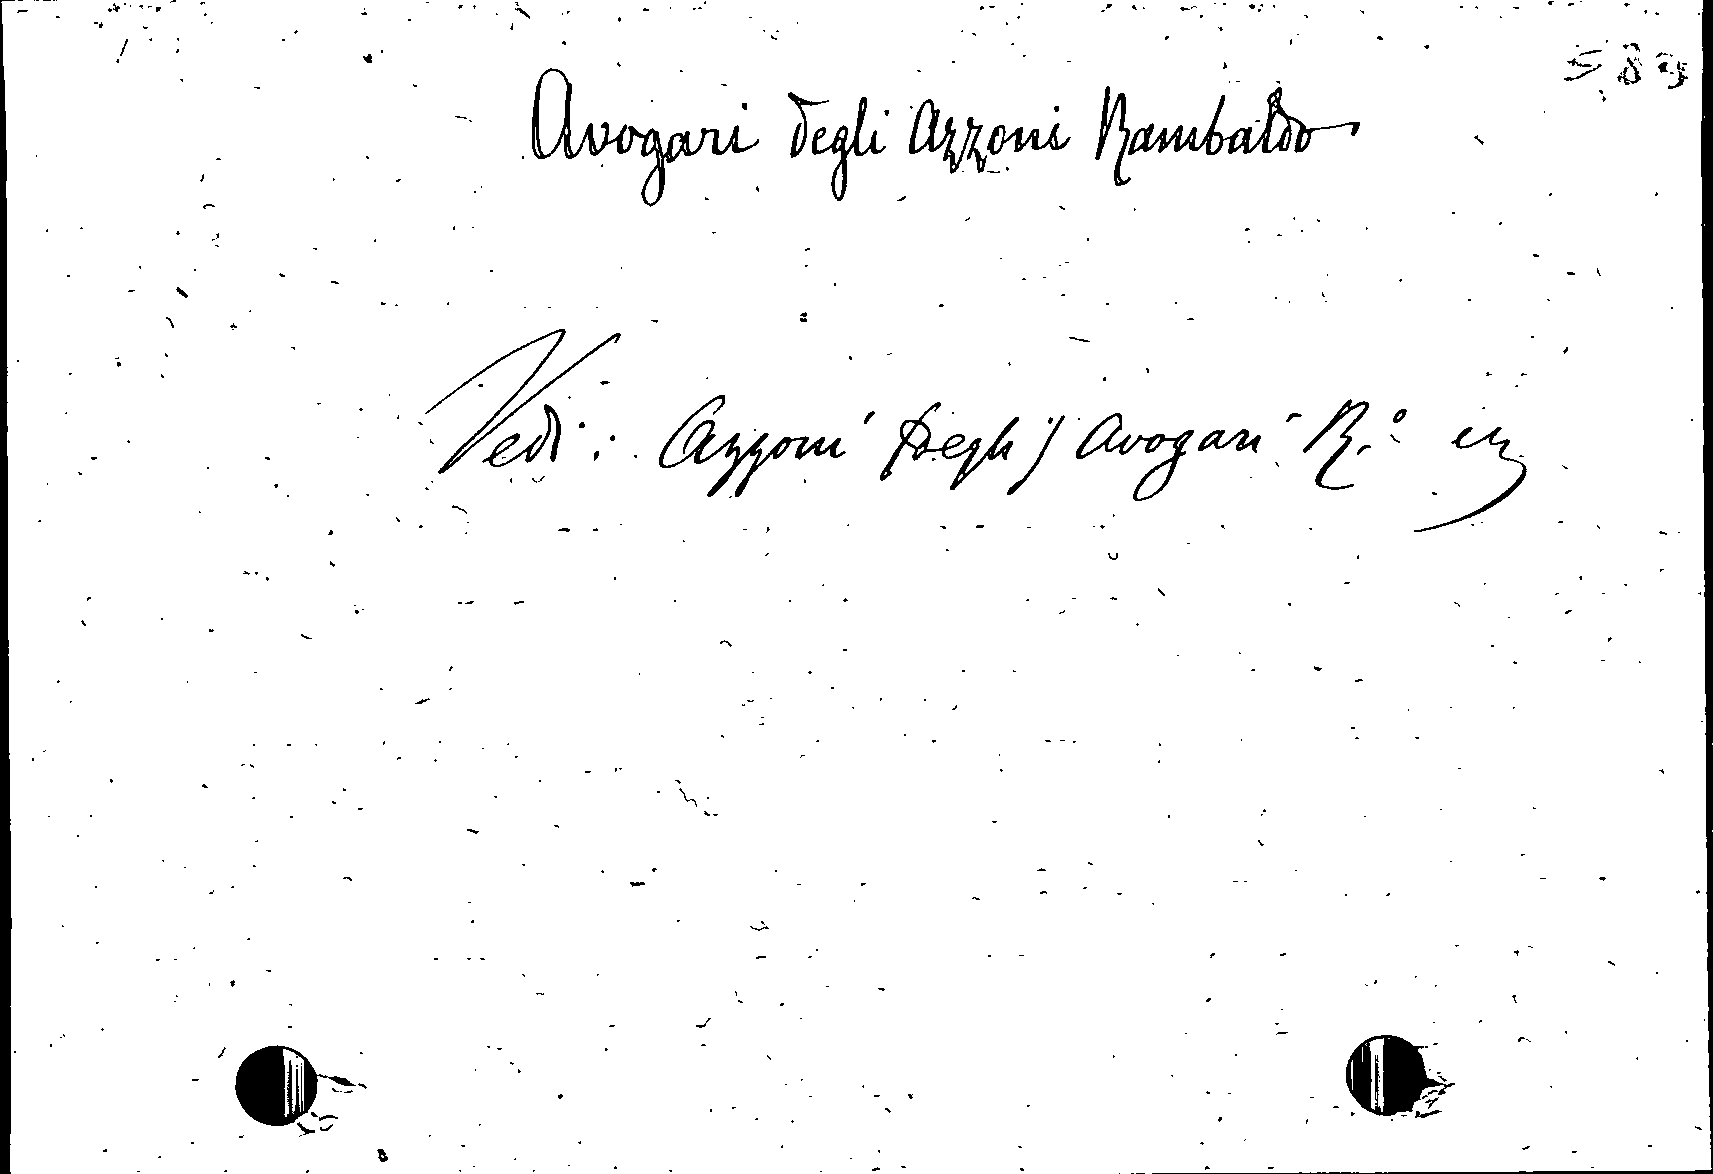 583
Avogari degli Azzoni Rambaldo
Vedi: Azzoni (degli) Avogari R.º